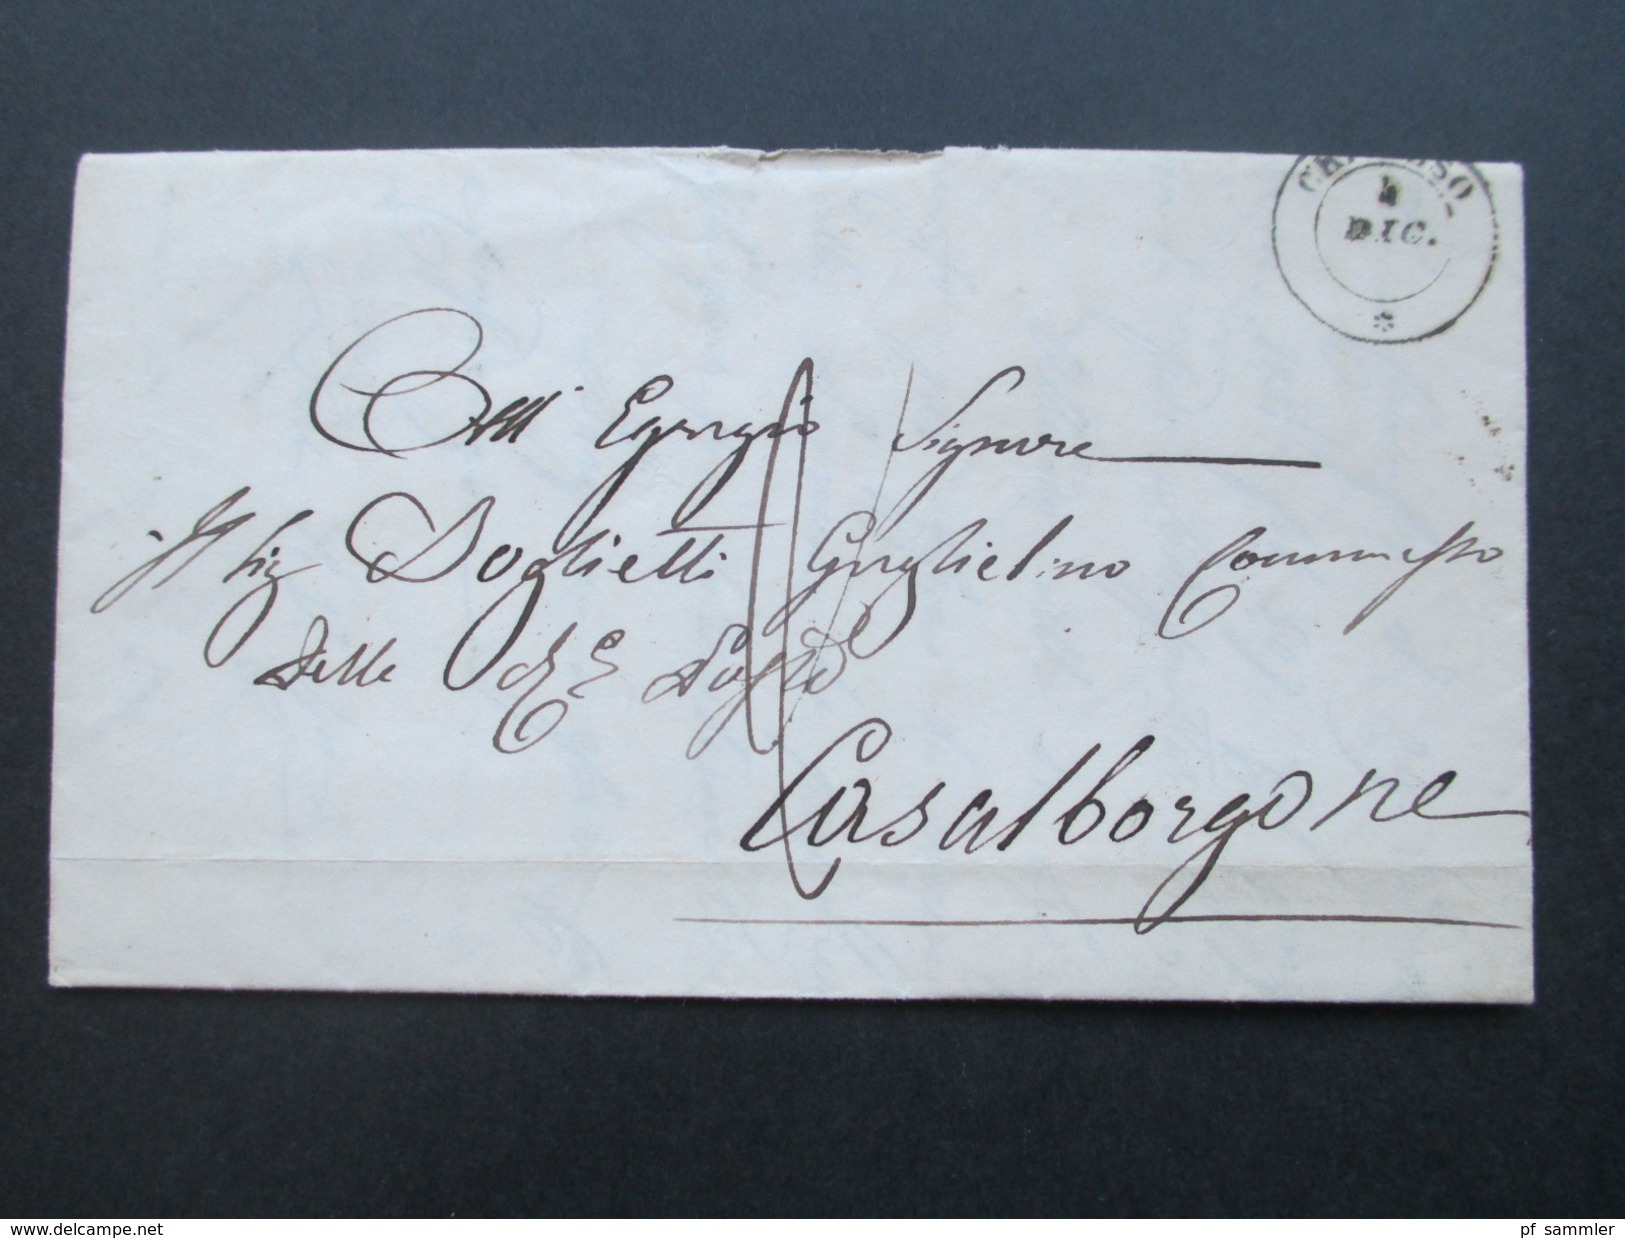 CHIVASSO
4
DIC.
All' Egregio Signore
Il Sig Doglietti Guglielmo Commesso
delle R E Poste
Casalborgone
delcampe.net
pf_sammler